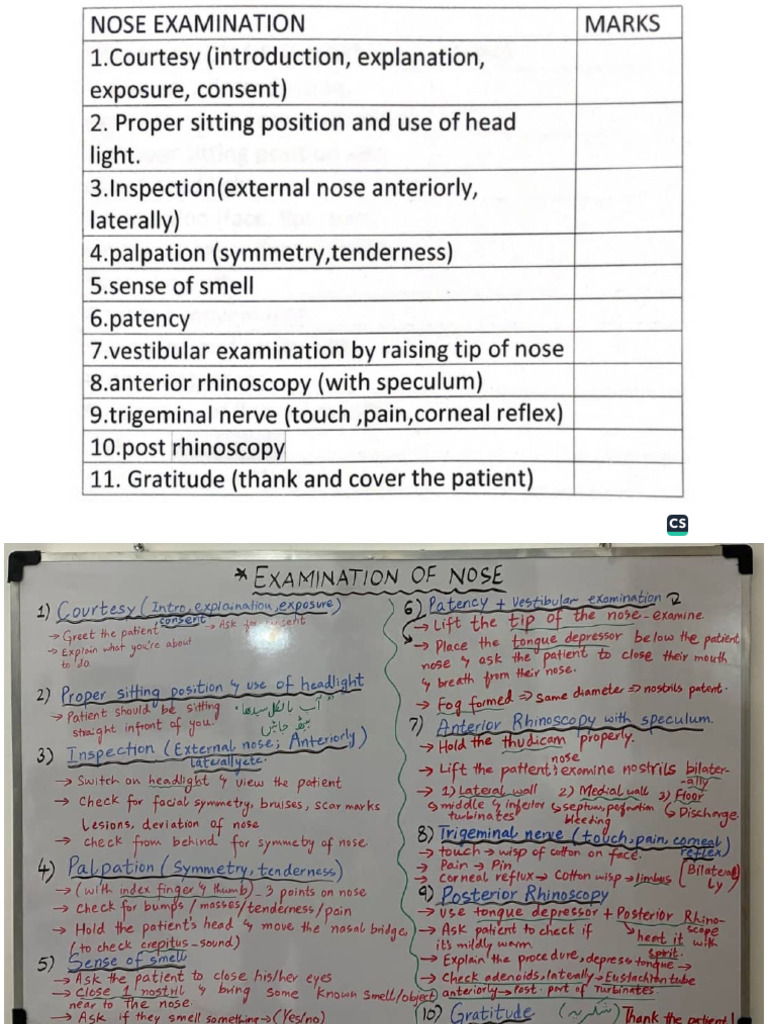 NOSE EXAMINATION MARKS
1.Courtesy (introduction, explanation,
exposure, consent)
2. Proper sitting position and use of head
light.
3.Inspection(external nose anteriorly,
laterally)
4.palpation (symmetry,tenderness)
5.sense of smell
6.patency
7.vestibular examination by raising tip of nose
8.anterior rhinoscopy (with speculum)
9.trigeminal nerve (touch ,pain,corneal reflex)
10.post rhinoscopy
11. Gratitude (thank and cover the patient)
CS
* EXAMINATION OF NOSE
1) Courtesy (Intro, explaination, exposure)
consent
→ Greet the patient → Ask for consent
→ Explain what you're about
to do.
2) Proper sitting position & use of headlight
→ Patient should be sitting
straight infront of you.
"آپ بالکل سیدھا
بیٹھ جائیں
3) Inspection (External nose; Anteriorly)
laterally etc.
→ Switch on headlight & view the patient
→ Check for facial symmetry, bruises, scar marks
Lesions, deviation of nose
→ check from behind for symmetry of nose.
4) Palpation (Symmetry, tenderness)
→ (with index finger & thumb) - 3 points on nose
→ Check for bumps/masses/tenderness/pain
→ Hold the patient's head & move the nasal bridge
(to check crepitus-sound)
5) Sense of smell
→ Ask the patient to close his/her eyes
→ Close 1 nostril & bring some known smell/object
near to the nose.
→ Ask if they smell something → (Yes/no)
6) Patency + Vestibular examination
→ Lift the tip of the nose - examine
→ Place the tongue depressor below the patient
nose & ask the patient to close their mouth
& breath from their nose.
→ Fog formed ⇒ Same diameter ⇒ nostrils patent.
7) Anterior Rhinoscopy with speculum.
→ Hold the thudicam properly.
nose
→ Lift the patient's examine nostrils bilater-
ally
→ 1) Lateral wall 2) Medial wall 3) Floor
middle & inferior septum, perforation Discharge
turbinates bleeding
8) Trigeminal nerve (touch, pain, corneal
reflex)
→ touch → wisp of cotton on face.
→ Pain → Pin
→ Corneal reflux → Cotton wisp → limbus [Bilateral
ly]
9) Posterior Rhinoscopy
→ Use tongue depressor + Posterior Rhino-
scope
→ Ask patient to check if heat it with
it's mildly warm spirit.
→ Explain the procedure, depress tongue →
→ Check adenoids, laterally → Eustachian tube
anteriorly → Post. part of Turbinates
10) Gratitude (شکریہ) Thank the patient!